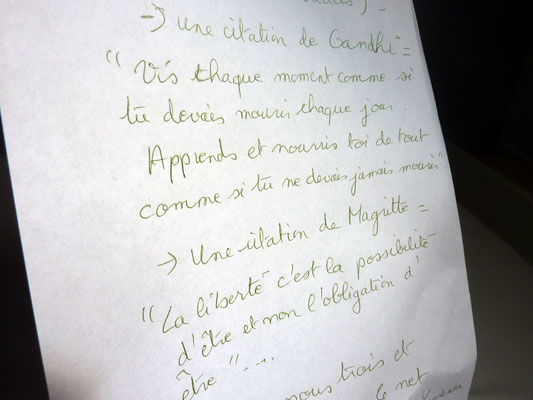 -> une citation de Gandhi =
"Vis chaque moment comme si
tu devais mourir chaque jour.
Apprends et nourris toi de tout
comme si tu ne devais jamais mourir".
-> Une citation de Magritte =
"La liberté c'est la possibilité
d'être et non l'obligation d'
être"....
nous trois et
le net